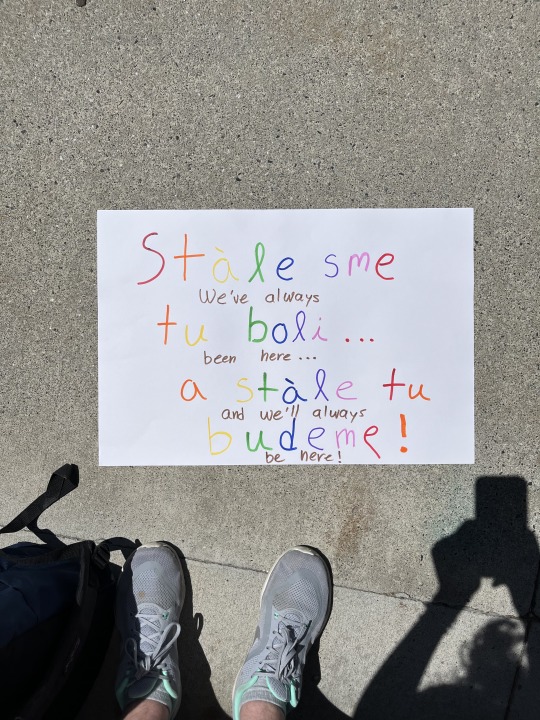 Stàle sme
We've always
tu boli ...
been here ...
a stàle tu
and we'll always
budeme!
be here!